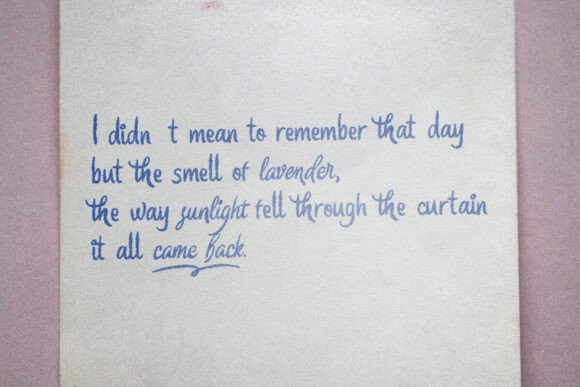 I didn t mean to remember that day
but the smell of lavender,
the way sunlight fell through the curtain
it all came back.